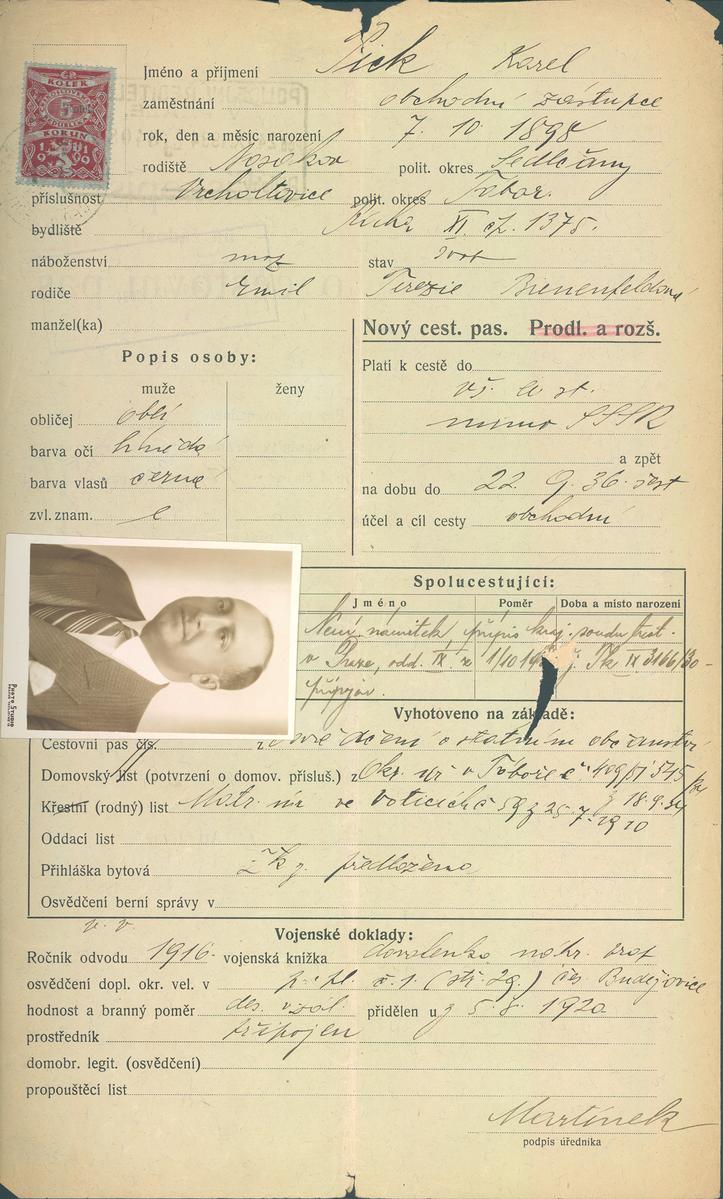 Pick Karel
KOLEK
5
KORUN
1919
Jméno a příjmení
zaměstnání obchodní zástupce
rok, den a měsíc narození 7. 10. 1898
rodiště Nosákov polit. okres Sedlčany
příslušnost Vrchotovice polit. okres Tábor.
bydliště Praha XI. čp. 1375.
náboženství moj stav svob
rodiče Emil Terezie Bienenfeldová
manžel(ka)
Nový cest. pas. Prodl. a rozš.
Popis osoby:
muže ženy
obličej oblí
barva očí hnědá
barva vlasů černé
zvl. znam.
Platí k cestě do vš. ev. st.
mimo SSSR
a zpět
na dobu do 22. 9. 36. šest
účel a cíl cesty obchodní
Spolucestující:
Jméno Poměr Doba a místo narození
Není námitek, přípis kraj. soudu trest.
v Praze, odd. IX. z 1/10 Tk IX 3166/30 -
připojen.
PHOTO STUDIO
Vyhotoveno na základě:
Cestovní pas čís. osvědčení o státním občanství
Domovský list (potvrzení o domov. přísluš.) z Okr. úř. v Táboře č. 409/51 545
Křestní (rodný) list Matr. úř. ve Voticích č. 59 z 25. 7. 1910 18.9.31
Oddací list
Přihláška bytová předloženo
Osvědčení berní správy v
Vojenské doklady:
Ročník odvodu 1916. vojenská kniżka dovolenka nahr. prof
osvědčení dopl. okr. vel. v p. pl. č. 1 (str. 29.) Čes. Budějovice
hodnost a branný poměr des. v zál. přidělen u z 5. 8. 1920
prostředník připojen
domobr. legit. (osvědčení)
propouštěcí list
Martínek
podpis úředníka